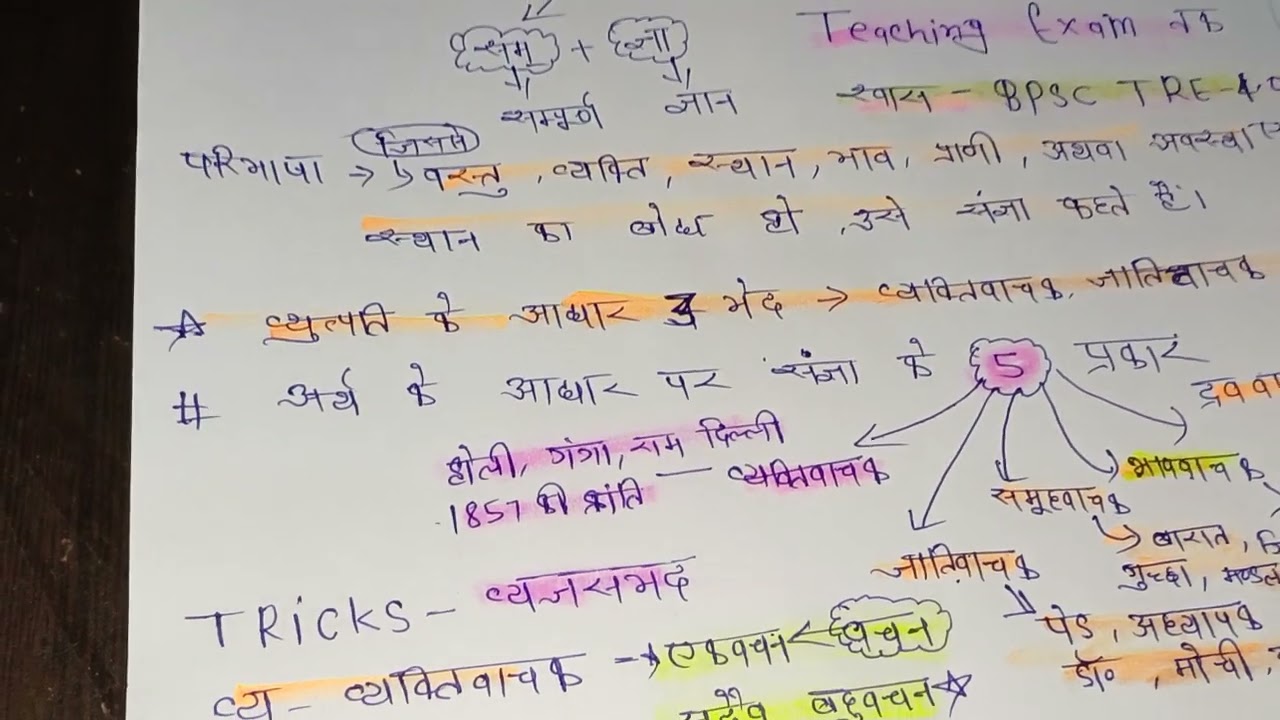 सम् + ज्ञा
Teaching Exam तक
सम्पूर्ण ज्ञान
खास - BPSC TRE-4.0
जिससे
परिभाषा → वस्तु, व्यक्ति, स्थान, भाव, प्राणी, अथवा अवस्था
स्थान का बोध हो, उसे संज्ञा कहते हैं।
☆ व्युत्पति के आधार 3 भेद → व्यक्तिवाचक, जातिवाचक
# अर्थ के आधार पर संज्ञा के 5 प्रकार
द्रववा
होली, गंगा, राम दिल्ली
1857 की क्रांति — व्यक्तिवाचक
भाववाचक
समूहवाचक
बारात,
गुच्छा, मण्डल
जातिवाचक
पेड, अध्यापक
डॉ०, मोची,
TRicKS - व्यजसभद
व्य - व्यक्तिवाचक → एकवचन ← वचन
सदैव बहुवचन ☆